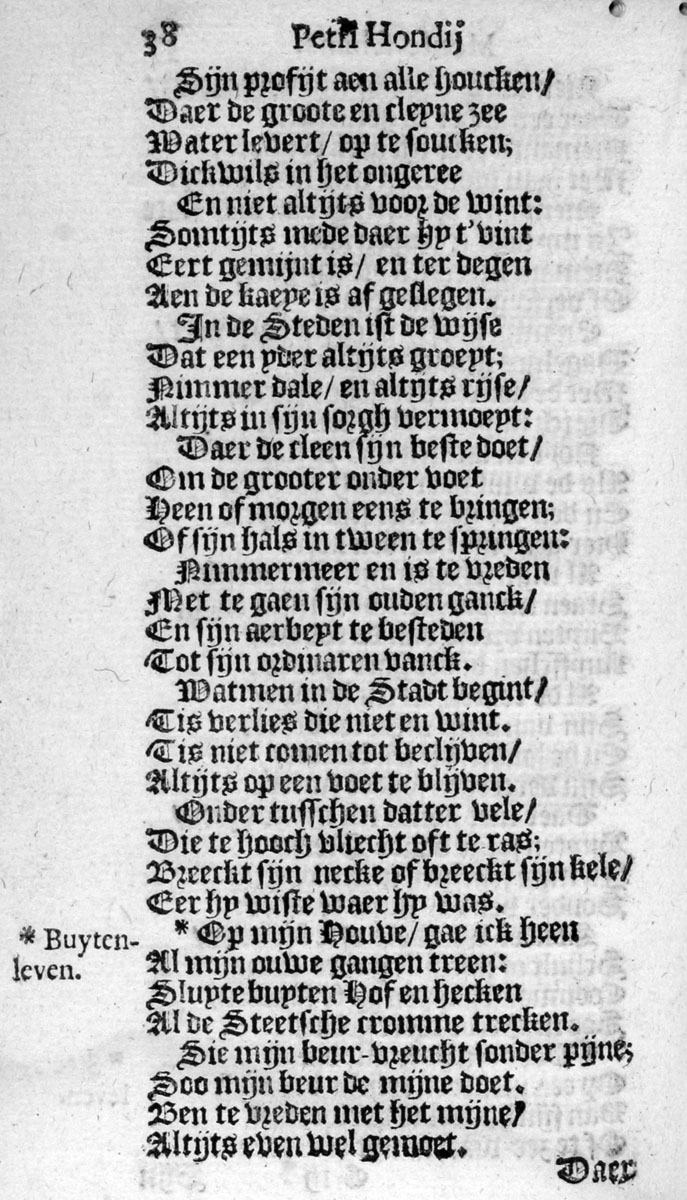 38 Petri Hondij
Sijn profijt aen alle houcken/
Daer de groote en cleyne zee
Water levert/ op te soucken;
Dickwils in het ongeree
En niet altijts voor de wint:
Somtijts mede daer hy t'vint
Eert gemijnt is/ en ter degen
Aen de kaeye is af geslegen.
In de Steden ist de wijse
Dat een yder altijts groeyt;
Nimmer dale/ en altijts rijse/
Altijts in sijn sorgh vermoeyt:
Daer de cleen sijn beste doet/
Om de grooter onder voet
Heen of morgen eens te bringen;
Of sijn hals in tween te springen:
Nimmermeer en is te vreden
Met te gaen sijn ouden ganck/
En sijn aerbeyt te besteden
Tot sijn ordinaren vanck.
Watmen in de Stadt begint/
Tis verlies die niet en wint.
Tis niet comen tot beclijven/
Altijts op een voet te blijven.
Onder tusschen datter vele/
Die te hooch vliecht oft te ras;
Breeckt sijn necke of breeckt sijn kele/
Eer hy wiste waer hy was.
* Buyten-
leven.
* Op mijn Houve/ gae ick heen
Al mijn ouwe gangen treen:
Sluyte buyten Hof en hecken
Al de Steetsche cromme trecken.
Sie mijn beur-vreucht sonder pijne;
Soo mijn beur de mijne doet.
Ben te vreden met het mijne/
Altijts even wel gemoet.
Daer